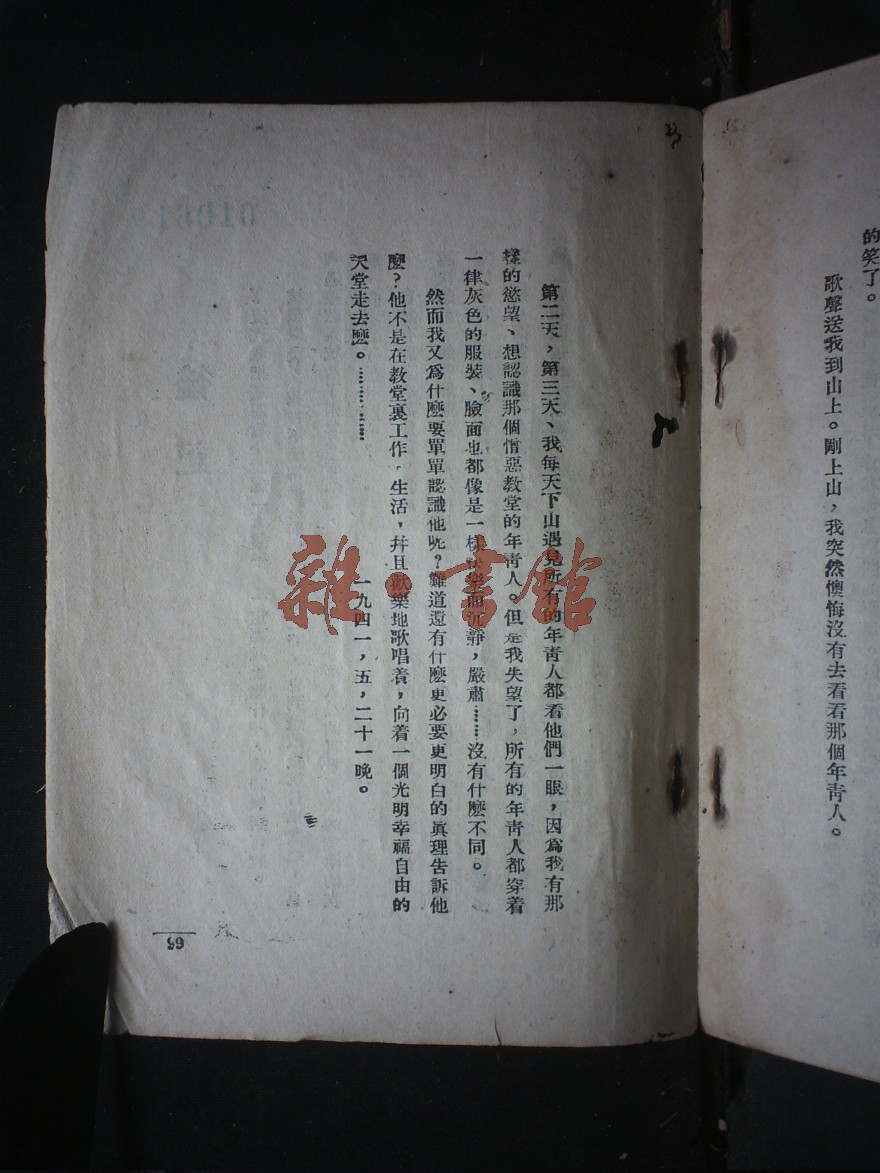 的笑了。
歌聲送我到山上。剛上山，我突然懊悔沒有去看看那個年靑人。
第二天，第三天、我每天下山遇見所有的年靑人都看他們一眼，因爲我有那
樣的慾望、想認識那個憎惡教堂的年靑人。但是我失望了，所有的年靑人都穿着
一律灰色的服裝、臉面也都像是一樣快樂而沉靜，嚴肅……沒有什麽不同。
然而我又爲什麽要單單認識他呢？難道還有什麽更必要更明白的眞理告訴他
麽？他不是在教堂裏工作，生活，幷且歡樂地歌唱着，向着一個光明幸福自由的
天堂走去麽。………
一九四一，五，二十一晚。
99
雜·書館